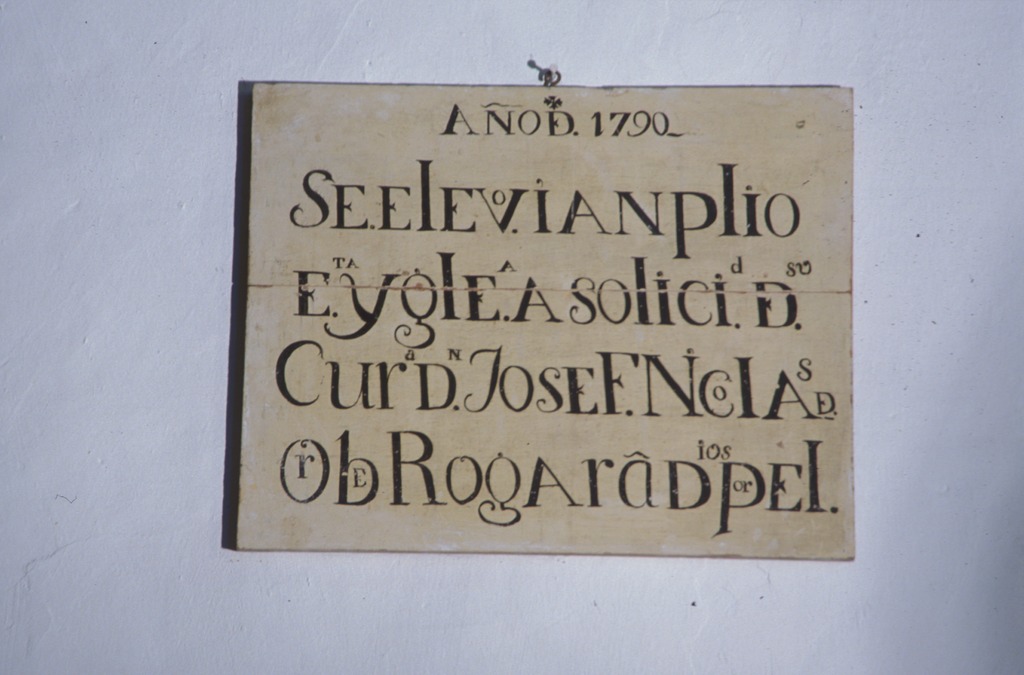 AÑO Đ. 1790
SE.ElEvo.IANplio
E.TA yglE.A A solici.d Đ. su
Curâ D.N JosEF. NicolAs Đ
OrbE RogAr â Dios por El.